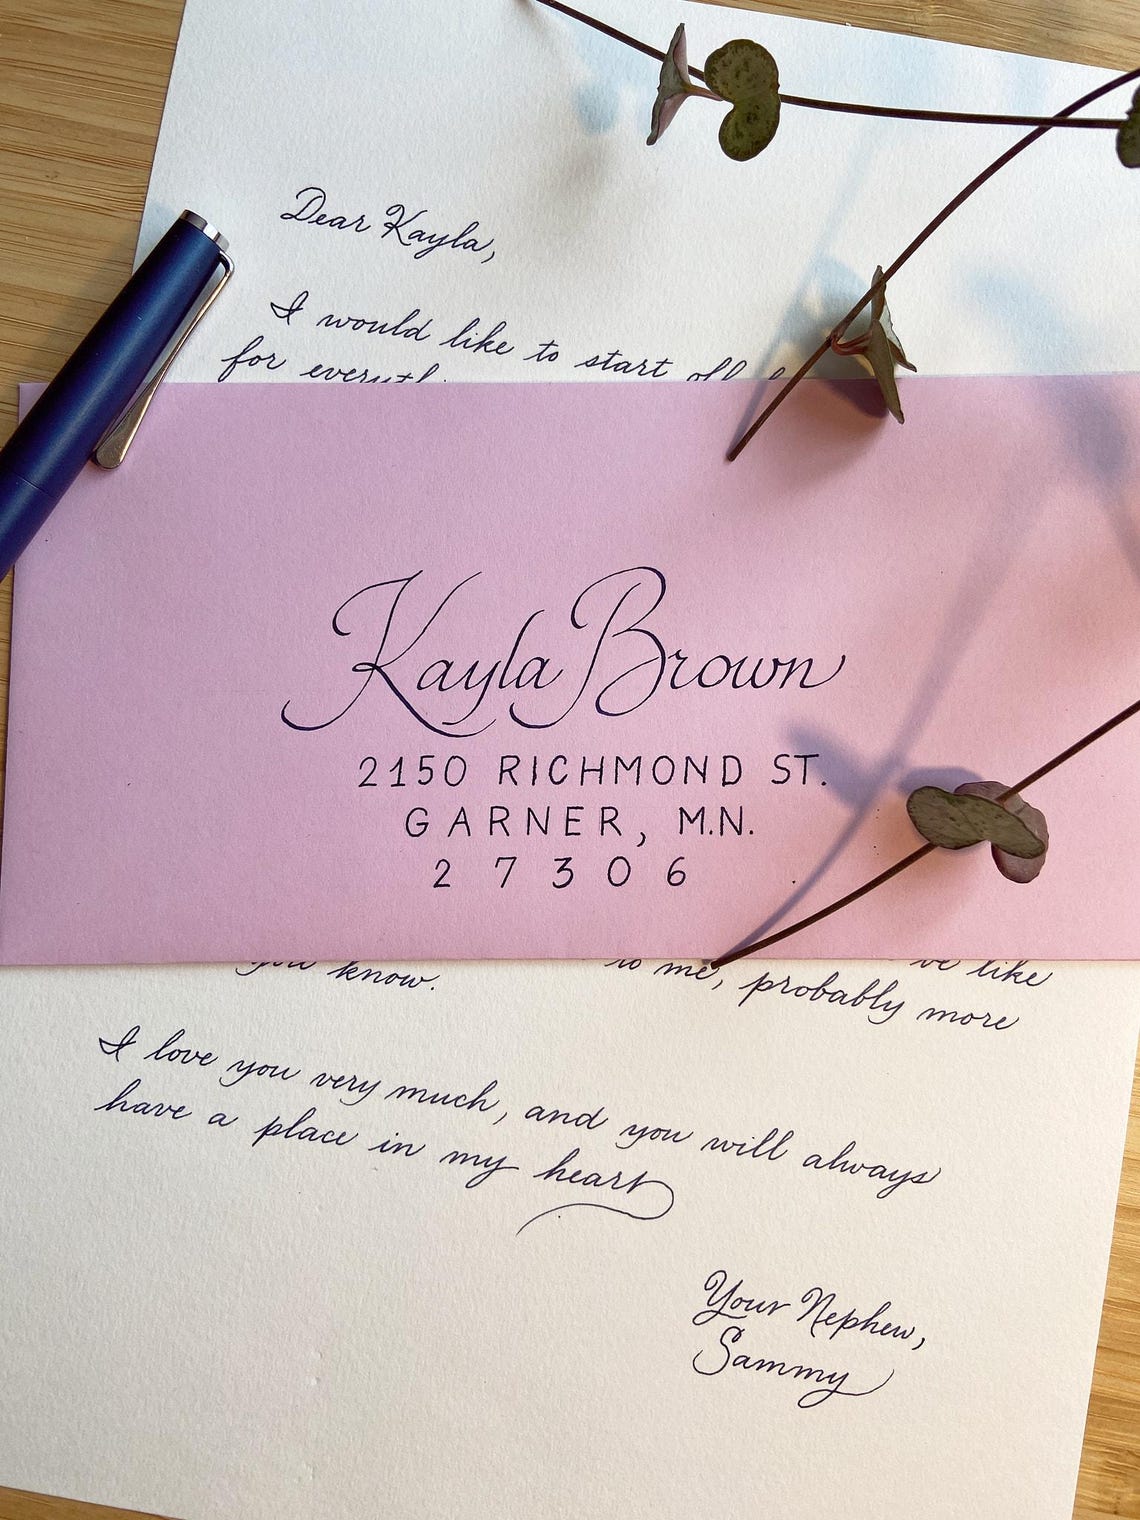 Dear Kayla,
I would like to start off
for
Kayla Brown
2150 RICHMOND ST.
GARNER, M.N.
27306
you know.
to me, probably more
like
I love you very much, and you will always
have a place in my heart
Your Nephew,
Sammy